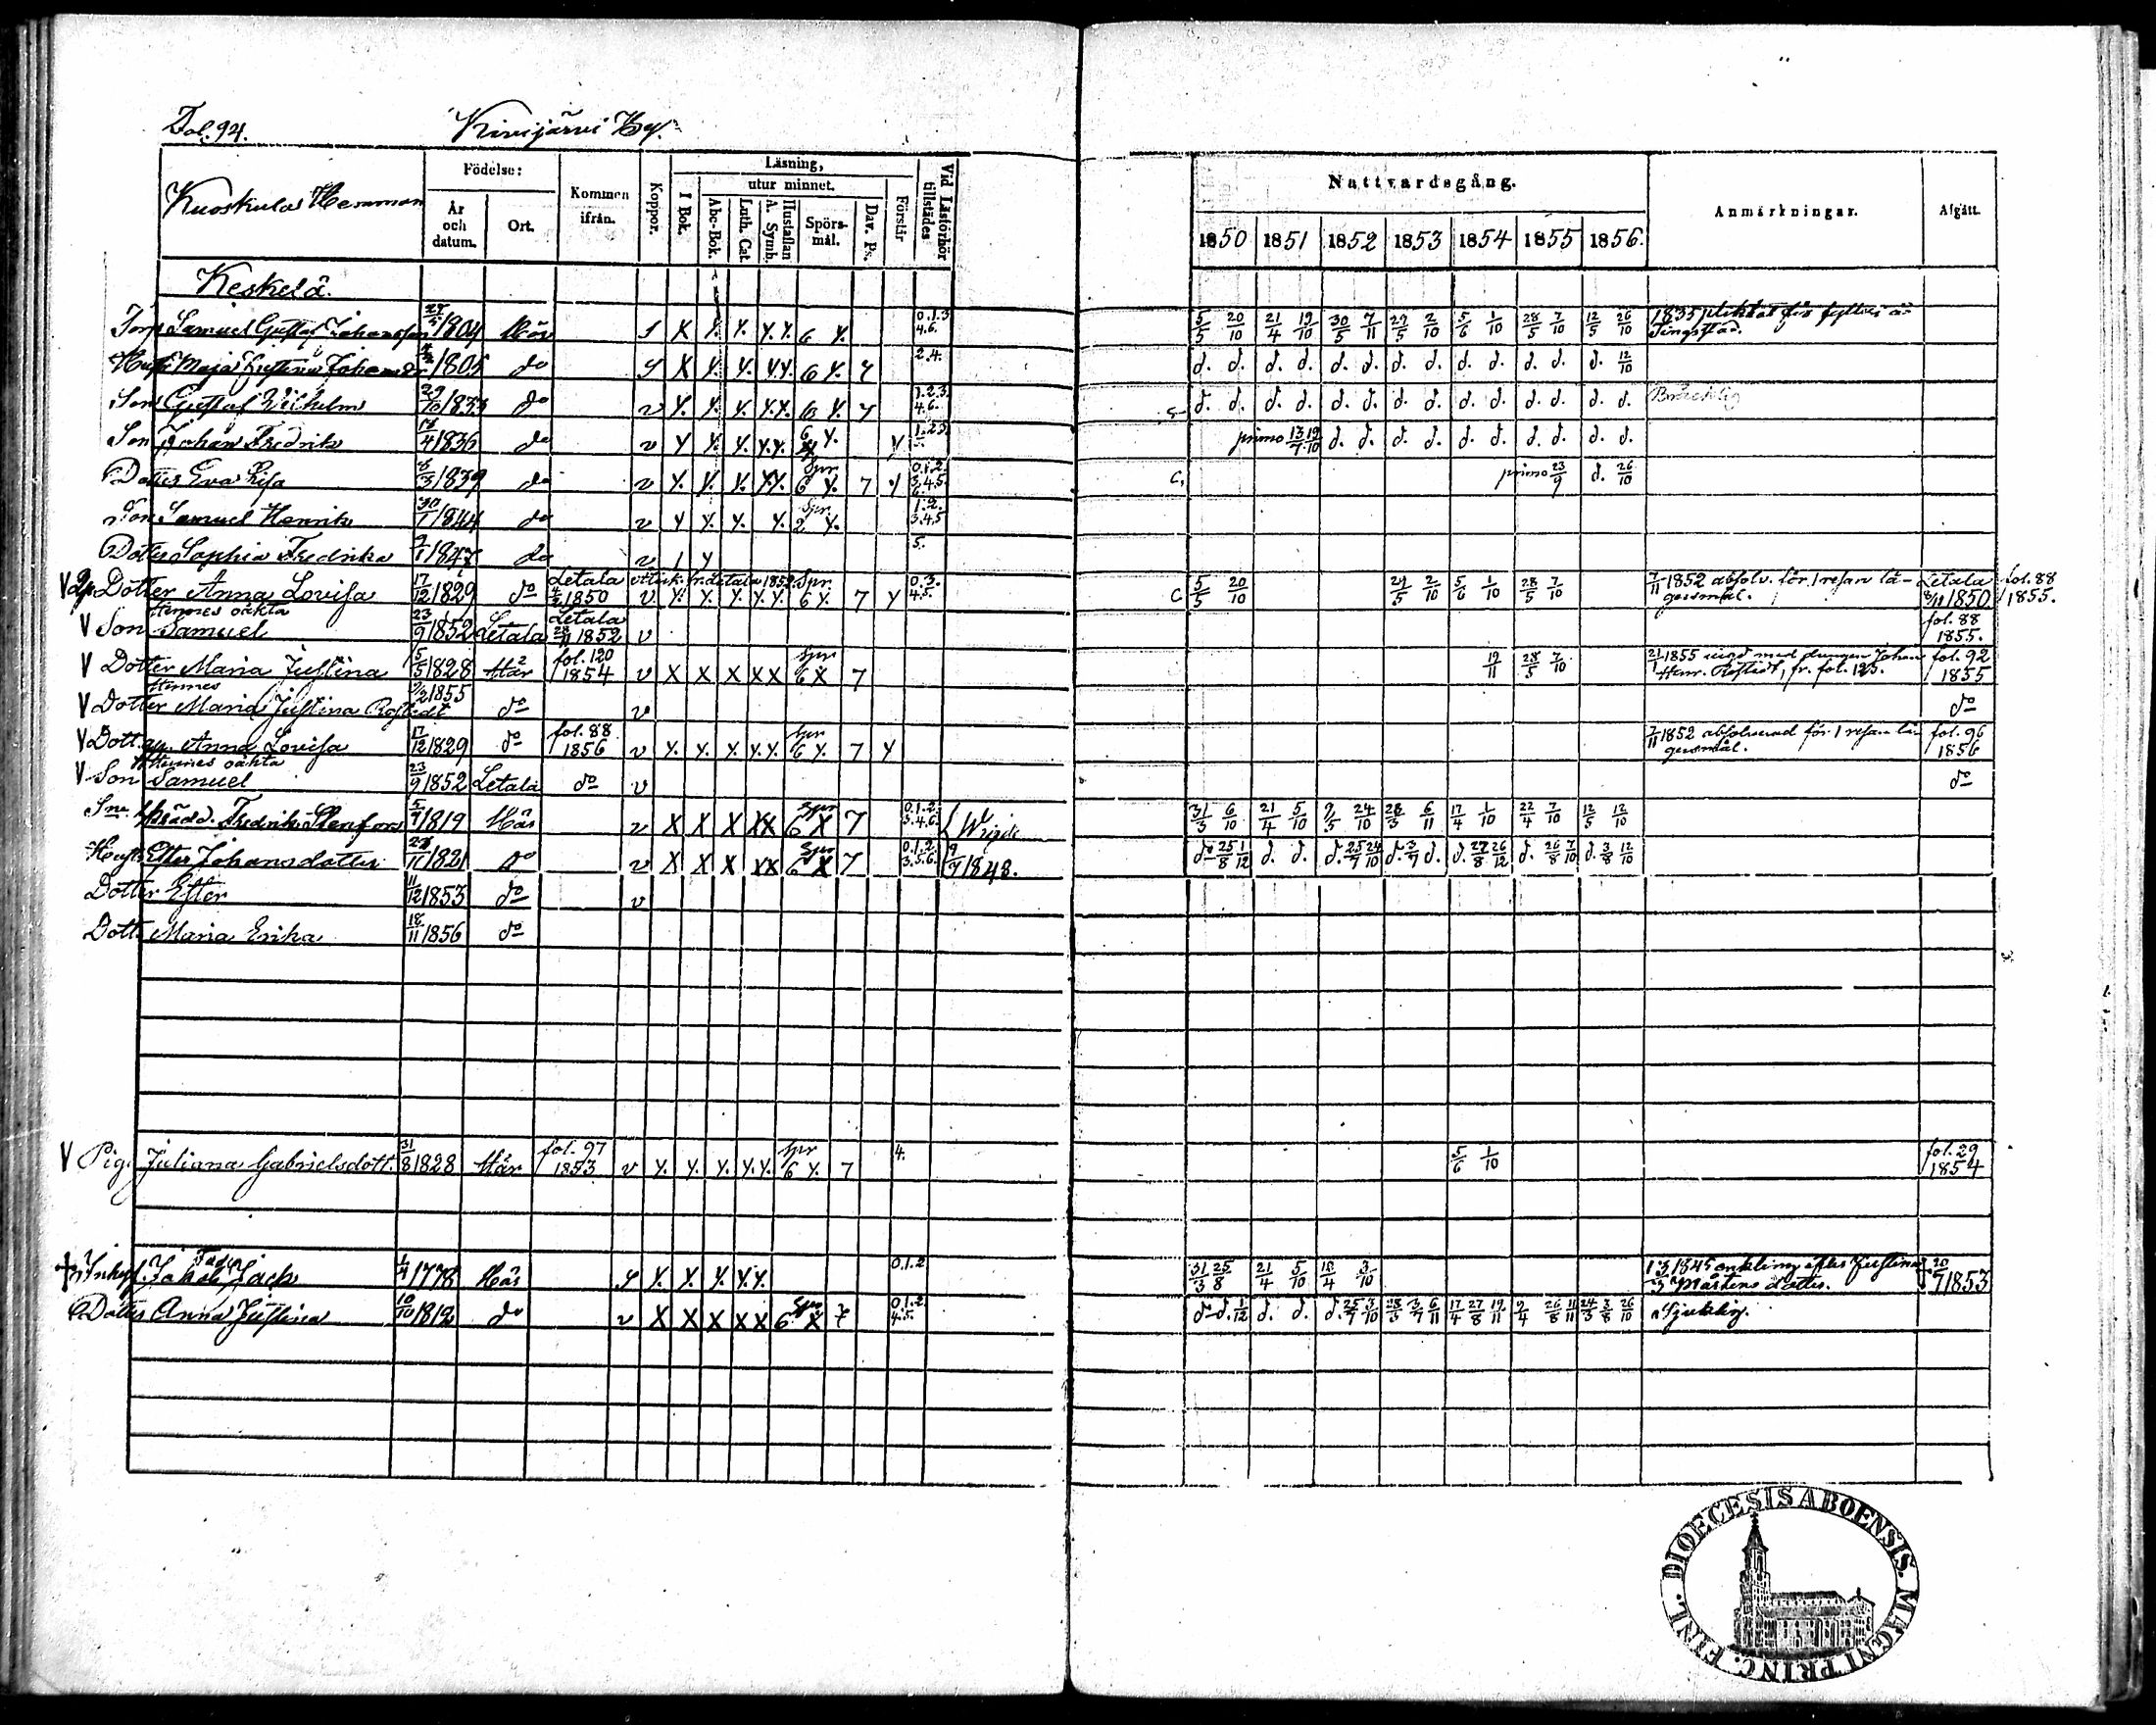 Fol. 94. Kivijärvi By.
Kuoskula Hemman
Födelse:
År och datum.
Ort.
Kommen ifrån.
Koppor.
Läsning,
I Bok.
utur minnet.
Abc-Bok.
Luth. Cat.
A. Symb.
Hustaflan
Spörsmål.
Dav. Ps.
Förstår
Vid Läsförhör tillstädes
Nattvardsgång.
1850 1851 1852 1853 1854 1855 1856.
Anmärkningar.
Afgått.
Keskelä.
Torp Samuel Gustaf Johansson 1804 0.1.3 4.6. 5/5 20/10 21/4 19/10 30/5 7/11 29/5 2/10 5/6 1/10 28/5 7/10 12/5 26/10 1835
Hust. Maja Justina 1805 do 2.4. d. d. d. d. d. d. d. d. d. d. d. d. d. 12/10
Son Gustaf Wilhelm 29/10 1833 do v y. y. y. y.y. 6 y. 7 1.2.3. 4.6. d. d. d. d. d. d. d. d. d. d. d. d. d. d. Bräcklig
Son Johan Fredrik 1836 do v y y. y. y.y. 6 y. y primo 13/7 19/10 d. d. d. d. d. d. d. d. d. d.
Dotter Eva Lisa 1839 do v y. y. y. y.y. Spr. 6 y. 7 y 0.1.2. 3.4.5. 6. primo 23/9 d. 26/10
Son Samuel Henrik 30/1 1844 do v y y. y. y. Spr. 2 y. 1.2. 3.4.5
Dotter Sophia Fredrika 9/1 1847 do v 1 y 5.
V Dotter Anna Lovisa 17/12 1829 do Letala 4/2 1850 fr. Letala 1852. v y. y. y. y.y. Spr. 6 y. 7 y 0.3. 4.5. C 5/5 20/10 29/5 2/10 5/6 1/10 28/5 7/10 7/11 1852 absolv. för 1 resan lägersmål. Letala 8/11 1850 fol. 88 1855.
V Hennes oäkta Son Samuel 23/9 1852 Letala Letala 28/11 1852 v fol. 88 1855.
V Dotter Maria Justina 5/5 1828 När fol. 120 1854 v X X X XX Spr 6 X 7 19/11 28/5 7/10 21/1 1855 med drengen Johan Henr. Rostedt, fr. fol. 125. fol. 92 1855
V Hennes Dotter Maria Justina Rostedt 9/2 1855 do v do
V Dott. Anna Lovisa 17/12 1829 do fol. 88 1856 v y. y. y. y.y. Spr 6 y. 7 y 7/11 1852 absolverad för 1 resan lägersmål. fol. 96 1856
V Hennes oäkta Son Samuel 23/9 1852 Letala do v do
Fredrik Stenfors 5/7 1819 v X X X XX Spr 6 X 7 0.1.2. 3.4.6. Wigde 31/3 6/10 21/4 5/10 9/5 24/10 28/3 6/11 17/4 1/10 22/4 7/10 12/5 12/10
Hust. Ester Johansdotter 1821 do v X X X XX Spr 6 X 7 0.1.2. 3.5.6. 9/9 1848. do 25/8 1/12 d. d. d. 25/7 24/10 d. 3/7 d. d. 27/8 26/12 d. 26/8 7/10 d. 3/8 12/10
Dotter Ester 11/12 1853 do v
Dott. Maria Erika 18/11 1856 do
V Pig. Juliana Gabrielsdott. 31/8 1828 När fol. 97 1853 v y. y. y. y.y. Spr 6 y. 7 4. 5/6 1/10 fol. 29 1854
Inhys. Fadern Jakob Jach 1778 y. y. y. y.y. 0.1.2 31/3 25/8 21/4 5/10 18/4 3/10 1845 enkling efter Justina Mårtens dotter. 20/7 1853
Dotter Anna Justina 10/10 1812 do v X X X XX Spr 6 X 7 0.1.2. 4.5. do d. 1/12 d. d. d. 25/7 3/10 28/3 3/7 6/11 17/4 27/8 19/11 9/4 26/8 11/11 24/3 3/8 26/10 Sjuklig.
DIOECESIS ABOENSIS. MAGNI PRINC. FINL.